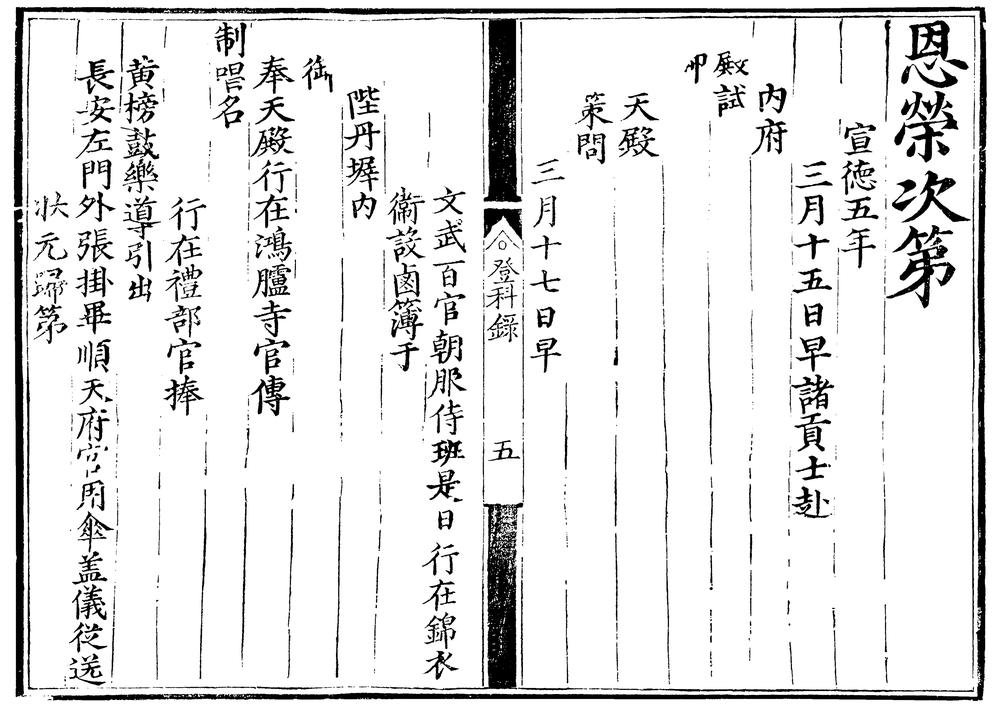 恩榮次第
宣德五年
三月十五日早諸貢士赴
內府
殿試
天殿
策問
三月十七日早
登科錄 五
文武百官朝服侍班是日行在錦衣
衞設鹵簿于
陛丹墀內
御
奉天殿行在鴻臚寺官傳
制唱名
行在禮部官捧
黃榜鼓樂導引出
長安左門外張掛畢順天府官用傘盖儀從送
狀元歸第